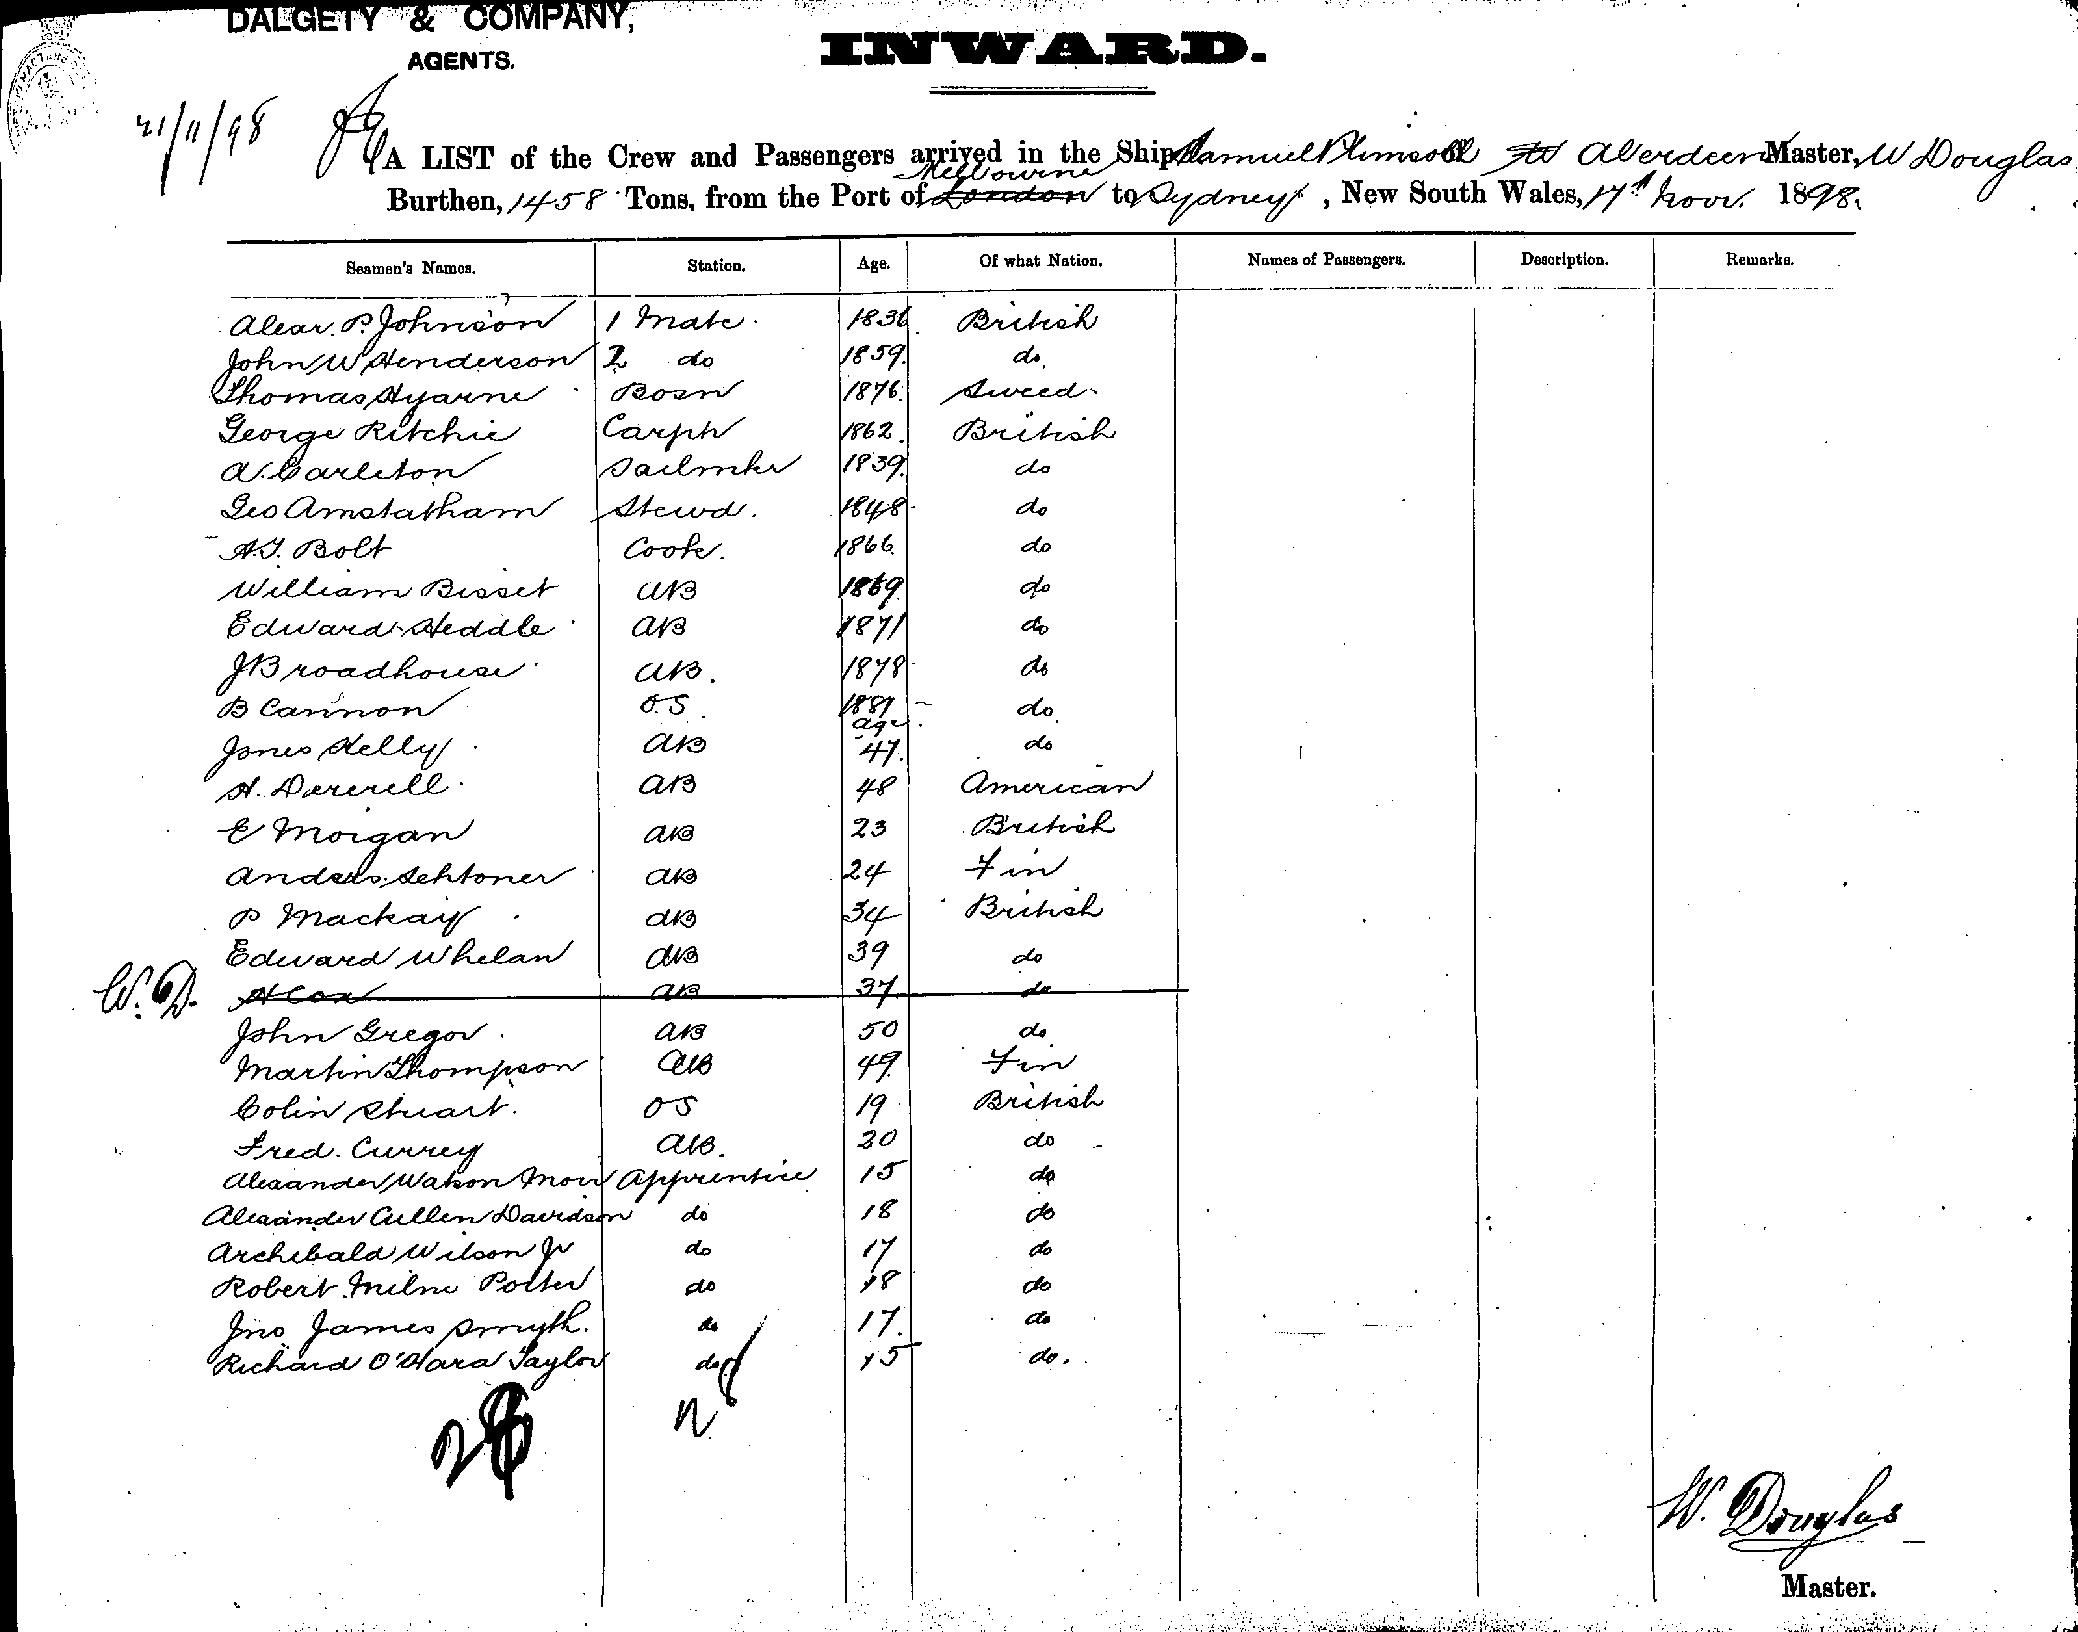 DALGETY & COMPANY,
AGENTS.
INWARD.
21/11/98
A LIST of the Crew and Passengers arrived in the Ship Samuel Plimsoll Aberdeen Master, W Douglas
Melbourne
Burthen, 1458 Tons, from the Port of London to Sydney, New South Wales, 17th Novr. 1898.
Seamen's Names. Station. Age. Of what Nation. Names of Passengers. Description. Remarks.
Alexr. P. Johnson 1 Mate. 1836 British
John W Henderson 2 do 1859. do.
Thomas Hyarne Bosn 1876. Sweed
George Ritchie Carptr 1862. British
A. Carleton Sailmkr 1839. do
Geo Amstatham Stewd. 1848 do
A.T. Bolt Cook. 1866. do
William Bisset AB 1869 do
Edward Heddle AB 1871 do
J Broadhouse AB. 1878 do
B Cannon O.S. 1881 do
age
Jones Kelly AB 47. do
H. Dererell AB 48 American
E Morgan AB 23 British
Anders Sehtoner AB 24 Fin
P Mackay AB 34 British
Edward Whelan AB 39 do
W. D. H Cox AB 37 do
John Gregor AB 50 do
Martin Thompson AB 49 Fin
Colin Stuart. OS 19 British
Fred. Currey AB. 20 do
Alexander Watson Moir Apprentice 15 do
Alexander Cullen Davidson do 18 do
Archibald Wilson Jr do 17 do
Robert Milne Porter do 18 do
Jno James Smyth. do 17. do
Richard O'Hara Taylor do 15 do.
28
W. Douglas
Master.